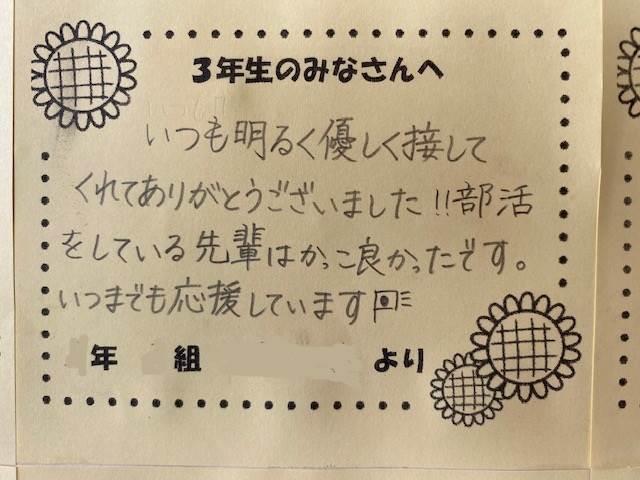 3年生のみなさんへ
いつも明るく優しく接して
くれてありがとうございました!!部活
をしている先輩はかっこ良かったです。
いつまでも応援しています
年 組 より